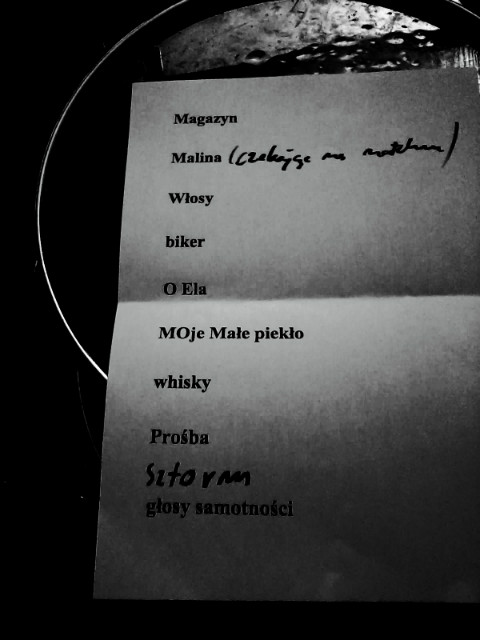 Magazyn
Malina (czekając na natchnienie)
Włosy
biker
O Ela
MOje Małe piekło
whisky
Prośba
Sztorm
głosy samotności